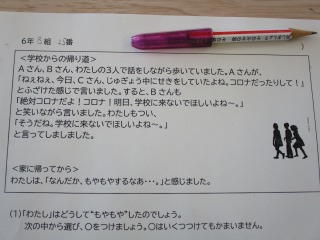 6年 組 番
<学校からの帰り道>
Aさん、Bさん、わたしの3人で話をしながら歩いていました。Aさんが、
「ねぇねぇ、今日、Cさん、じゅぎょう中にせきをしていたよね。コロナだったりして!」
とふざけた感じで言いました。すると、Bさんも
「絶対コロナだよ!コロナ!明日、学校に来ないでほしいよね~。」
と笑いながら言いました。わたしもつい、
「そうだね。学校に来ないでほしいよね~。」
と言ってしましました。
<家に帰ってから>
わたしは、「なんだか、もやもやするなあ・・・。」と感じました。
(1)「わたし」はどうして“もやもや”したのでしょう。
次の中から選び、○をつけましょう。○はいくつつけてもかまいません。